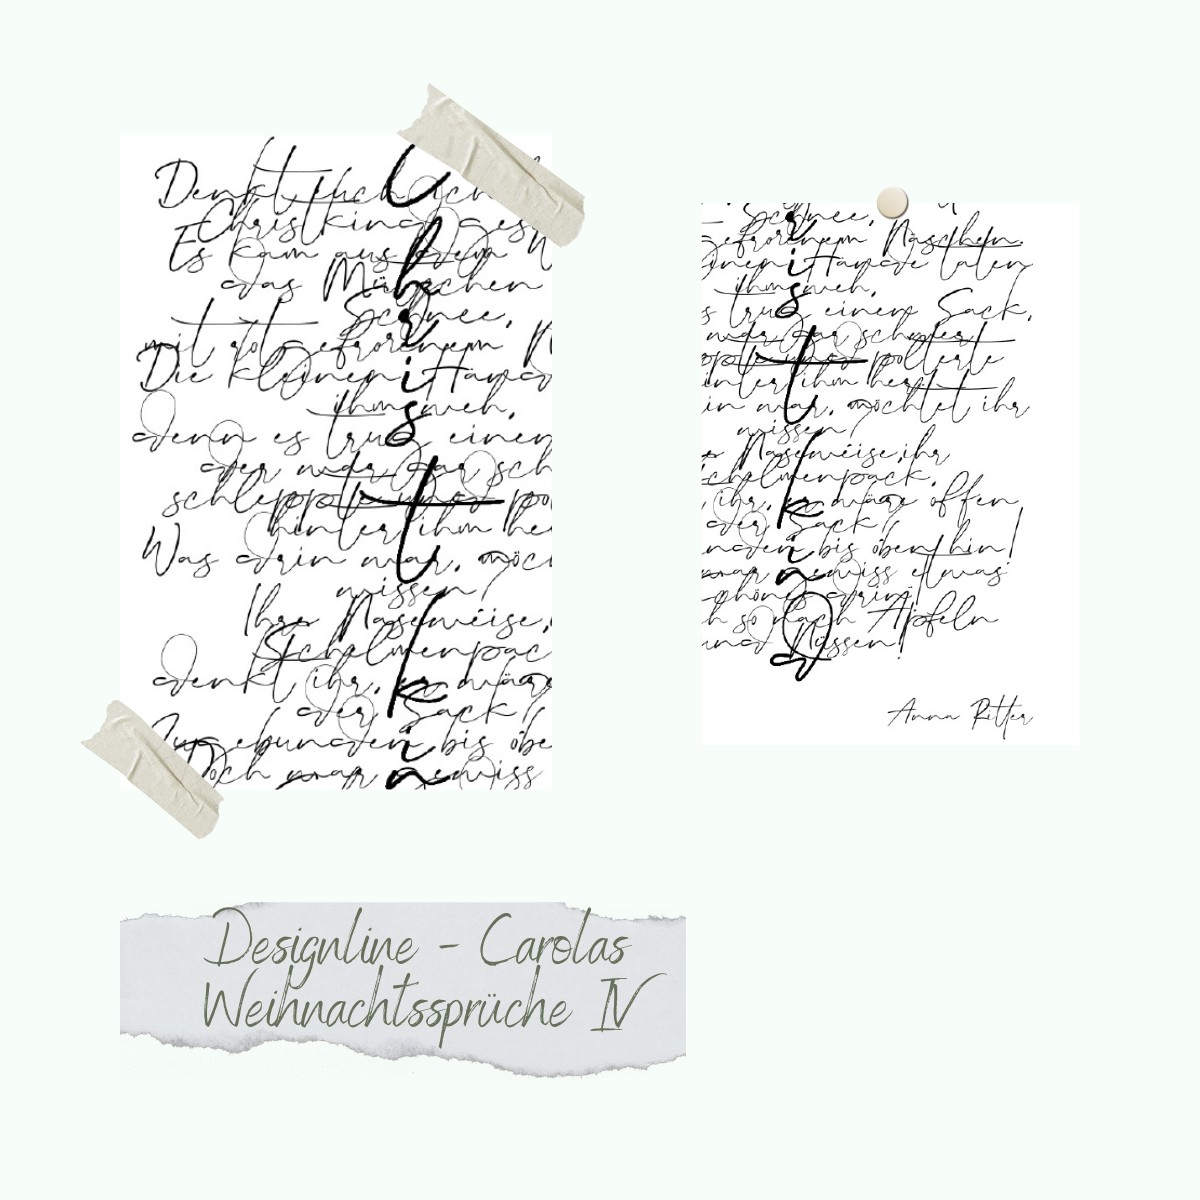 Denkt euch, ich
Christkind ges
Es kam aus dem W
das Mützchen
Schnee,
mit rotgefrorenem N
Die kleinen Hände
ihm weh,
denn es trug einen
der war gar sch
schleppte und pol
hinter ihm he
Was drin war, möch
wissen?
Ihr Naseweise,
Schelmenpac
denkt ihr, er wäre
der Sack?
Zugebunden bis obe
Doch war gewiss
Christkind
Schnee,
gefrorenem Näschen.
inen Hände taten
ihm weh,
s trug einen Sack,
war gar schwer,
pte und polterte
inter ihm her
in war, möchtet ihr
wissen?
Naseweise, ihr
chelmenpack,
ihr, er wäre offen
der Sack?
unden bis oben hin!
war gewiss etwas
Schönes drin!
h so nach Äpfeln
und Nüssen!
Anna Ritter
Designline - Carolas
Weihnachtssprüche IV